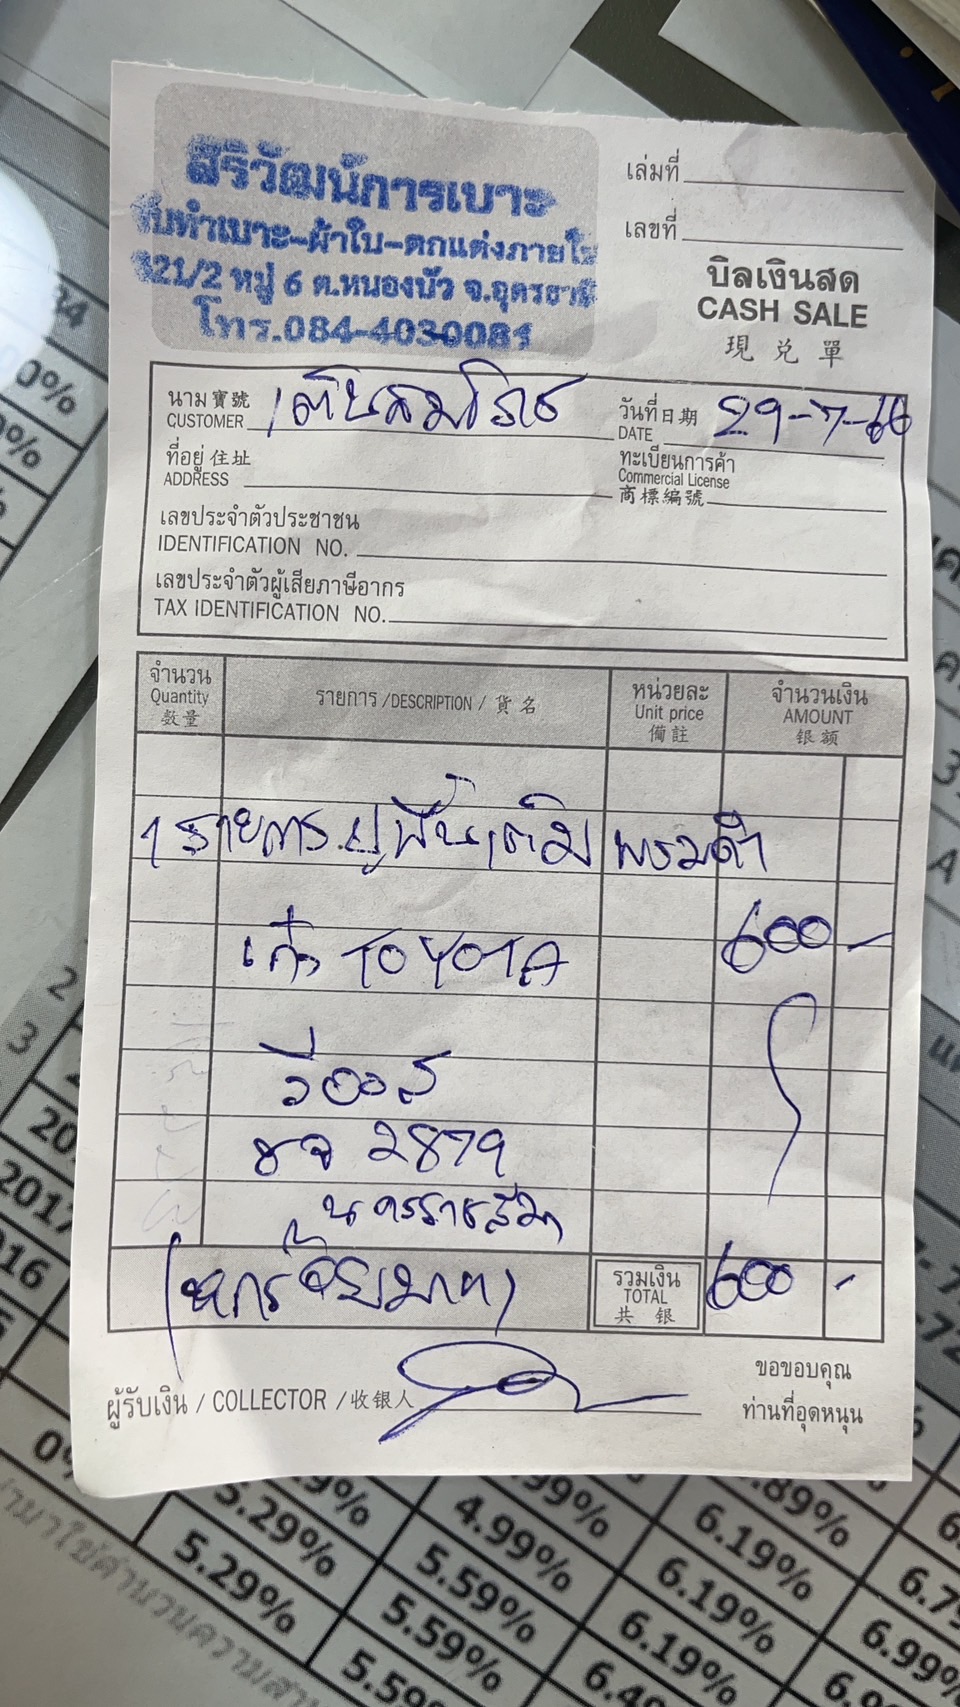 สิริวัฒน์การเบาะ
รับทำเบาะ-ผ้าใบ-ตกแต่งภายใน
321/2 หมู่ 6 ต.หนองบัว จ.อุดรธานี
โทร.084-4030081
เล่มที่
เลขที่
บิลเงินสด
CASH SALE
現 兌 單
นาม寶號
CUSTOMER
วันที่日期 29-7-66
DATE
ที่อยู่ 住址
ADDRESS
ทะเบียนการค้า
Commercial License
商標編號
เลขประจำตัวประชาชน
IDENTIFICATION NO.
เลขประจำตัวผู้เสียภาษีอากร
TAX IDENTIFICATION NO.
จำนวน รายการ/DESCRIPTION/貨名 หน่วยละ จำนวนเงิน
Quantity Unit price AMOUNT
數量 備註 银额
1 รายการ ปูพื้นเต็ม พรมดำ
600 -
เก๋ง TOYOTA
วีออส
ขจ 2879
นครราชสีมา
รวมเงิน 600 -
TOTAL
共 银
ผู้รับเงิน / COLLECTOR / 收银人
ขอขอบคุณ
ท่านที่อุดหนุน
2
3
2017
5.29%
5.29%
4.99%
5.59%
5.59%
6.19%
6.19%
6.19%
6.99%